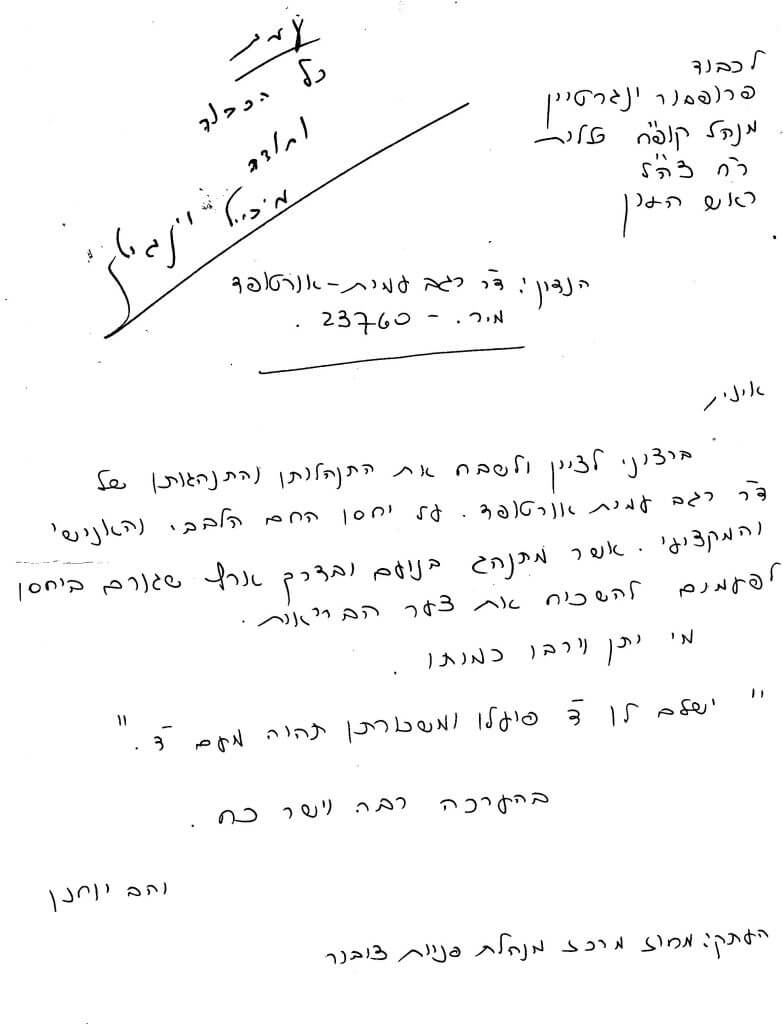 עמית
כל הכבוד
ותודה
לכבוד
פרופסור וינגרטיין
מנהל קופ"ח כללית
רח' צה"ל
ראש העין
הנדון: ד"ר רגב עמית - אורטופד
מ.ר. - 23760.
א.נ.,
ברצוני לציין ולשבח את התנהלותו והתנהגותו של
ד"ר רגב עמית אורטופד. על יחסו החם הלבבי והאנושי
והמקצועי. אשר מתנהג בנועם ובדרך ארץ שגורם ביחסו
לפעמים להשכיח את צער הבריאות.
מי יתן וירבו כמותו.
"ישלם לו ד' פועלו ומשכורתו תהיה מעם ד'."
בהערכה רבה ויישר כח.
והב יוחנן
העתק: מחוז מרכז מנהלת פניות ציבור